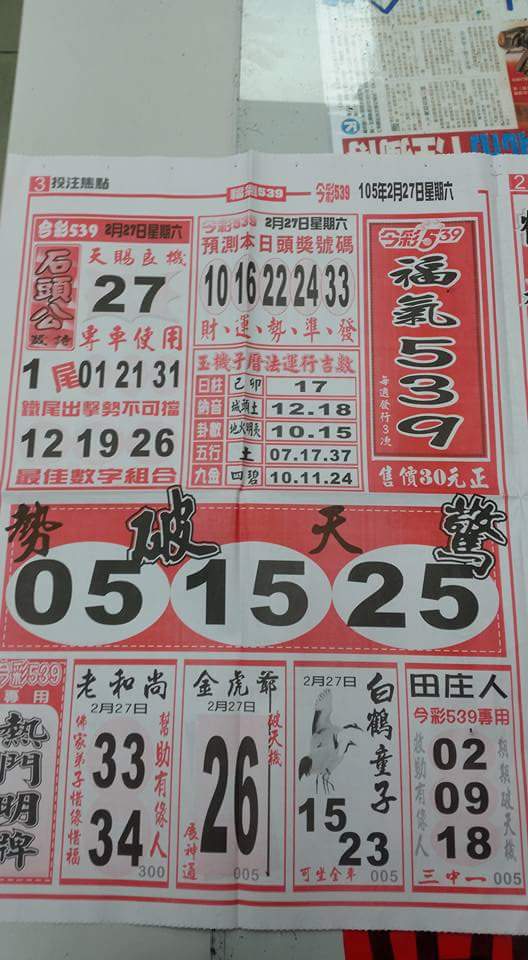 3 投注焦點
福彩539
今彩539 105年2月27日星期六
今彩539 2月27日星期六
石頭公
天賜良機
27
專車使用
1尾 01 21 31
鐵尾出擊勢不可擋
12 19 26
最佳數字組合
今彩539 2月27日星期六
預測本日頭獎號碼
10 16 22 24 33
財、運、勢、準、發
玉機子曆法運行吉數
日柱 己卯 17
納音 城頭土 12.18
卦數 地火明夷 10.15
五行 土 07.17.37
九金 四碧 10.11.24
今彩539
福氣539
每週發行3次
售價30元正
勢破天驚
05 15 25
今彩539
專用
熱門明牌
老和尚
2月27日
幫助有緣人
33
34
佛家弟子惜緣惜福
300
金虎爺
2月27日
破天機
26
展神通
005
2月27日
白鶴童子
15
23
可坐全車 005
田庄人
今彩539專用
期期破天機
02
09
18
救助有緣人
三中一 005